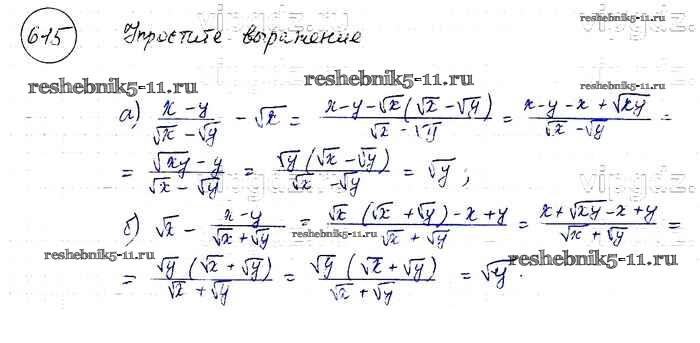 615 Упростите выражение
reshebnik5-11.ru
reshebnik5-11.ru
а) (x - y)/(√x - √y) - √x = (x - y - √x(√x - √y))/(√x - √y) = (x - y - x + √xy)/(√x - √y) =
= (√xy - y)/(√x - √y) = (√y(√x - √y))/(√x - √y) = √y;
vipgdz.ru
б) √x - (x - y)/(√x + √y) = (√x(√x + √y) - x + y)/(√x + √y) = (x + √xy - x + y)/(√x + √y) =
reshebnik5-11.ru
reshebnik5-11.ru
reshebnik5-11.ru
= (√y(√x + √y))/(√x + √y) = (√y(√x + √y))/(√x + √y) = √y.